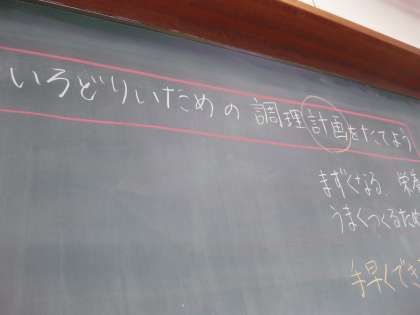 いろどりいための調理計画をたてよう
まずくなる、栄養
うまくつくるため
手早くでき